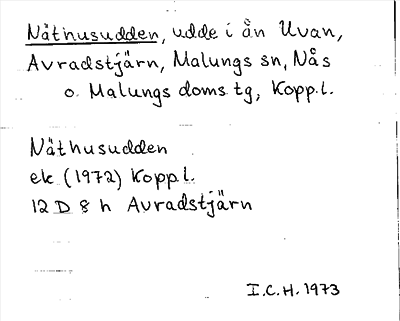 Näthusudden, udde i ån Uvan,
Avradstjärn, Malungs sn, Nås
o. Malungs doms. tg, Kopp.l.
Näthusudden
ek (1972) Kopp l.
12 D 8 h Avradstjärn
I.C.H. 1973